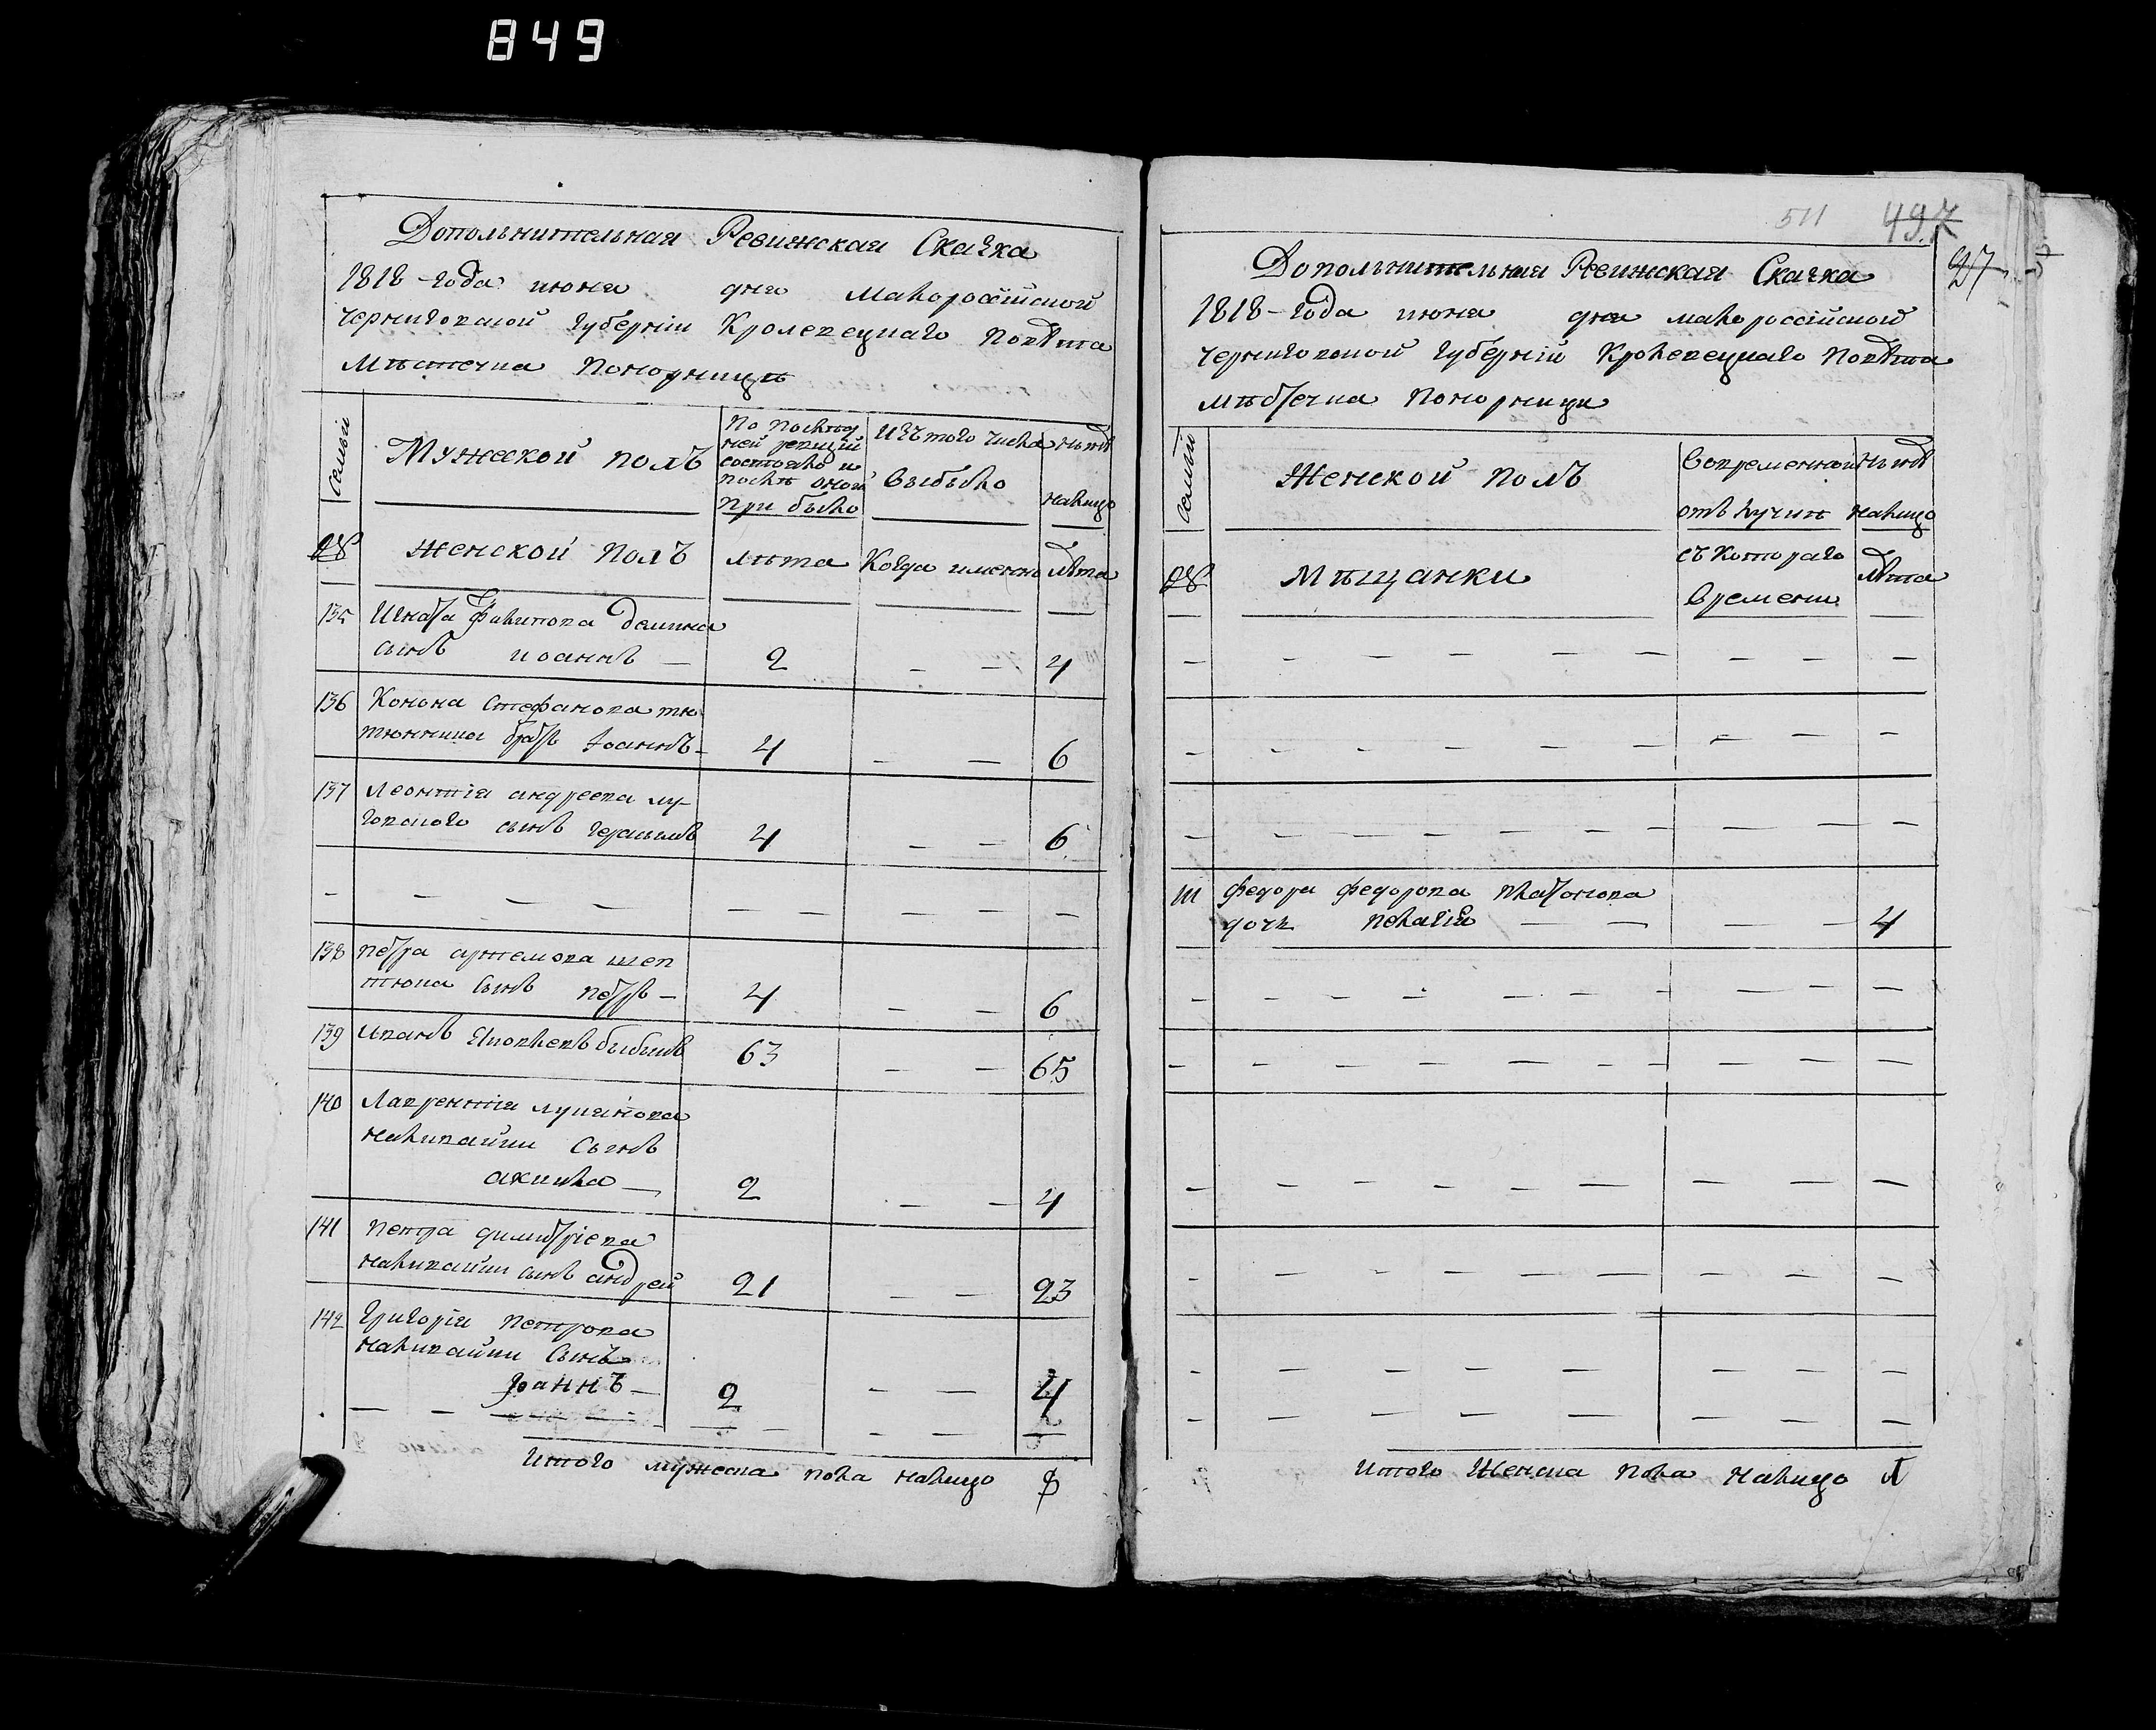 849
Дополнительная Ревижская Сказка
1818-года июня дня Малороссійской
Черниговской Губерніи Кролевецкаго Повѣта
Мѣстечка Понорницѣ
Семьи
Мужеской полъ
По послѣд
ней ревизіи
состояло и
послѣ оной
при было
Изъ того числа
выбыло
Нынѣ
налицо
№
женской полъ
лѣта
Когда именно
лѣта
135 Игната Филипова Демина
сынъ иоаннъ — 2 — — 4
136 Конона Стефанова тю
тюнника братъ Іоаннъ — 4 — — 6
137 Леонтія андреева лу-
говского сынъ Герасимъ 4 — — 6
— — — — — — — — —
138 петра артемова шеп
тюка сынъ петръ — 4 — — 6
139 иванъ бывшъ 63 — — 65
140 Лаврентія лукянова
наливайки сынъ
— 2 — — 4
141 петра димитріева
наливайки сынъ андрей 21 — — 23
142 Григорія петрова
наливайки сынъ
Іоаннъ — 2 — — 4
Итого мужеска пола налицо 9
511 497
Дополнительная Ревижская Сказка
1818-года июня дня малороссійской
черниговской Губерній Кролевецкаго Повѣта
мѣстечка Понорници
Семьи
Женской полъ
Во временной
отлучкѣ
Нынѣ
налицо
№
Мѣщанки
съ котораго
времени
лѣта
111 федора федорова платонова
дочь пелагія — — — — 4
Итого Женска пола налицо 1